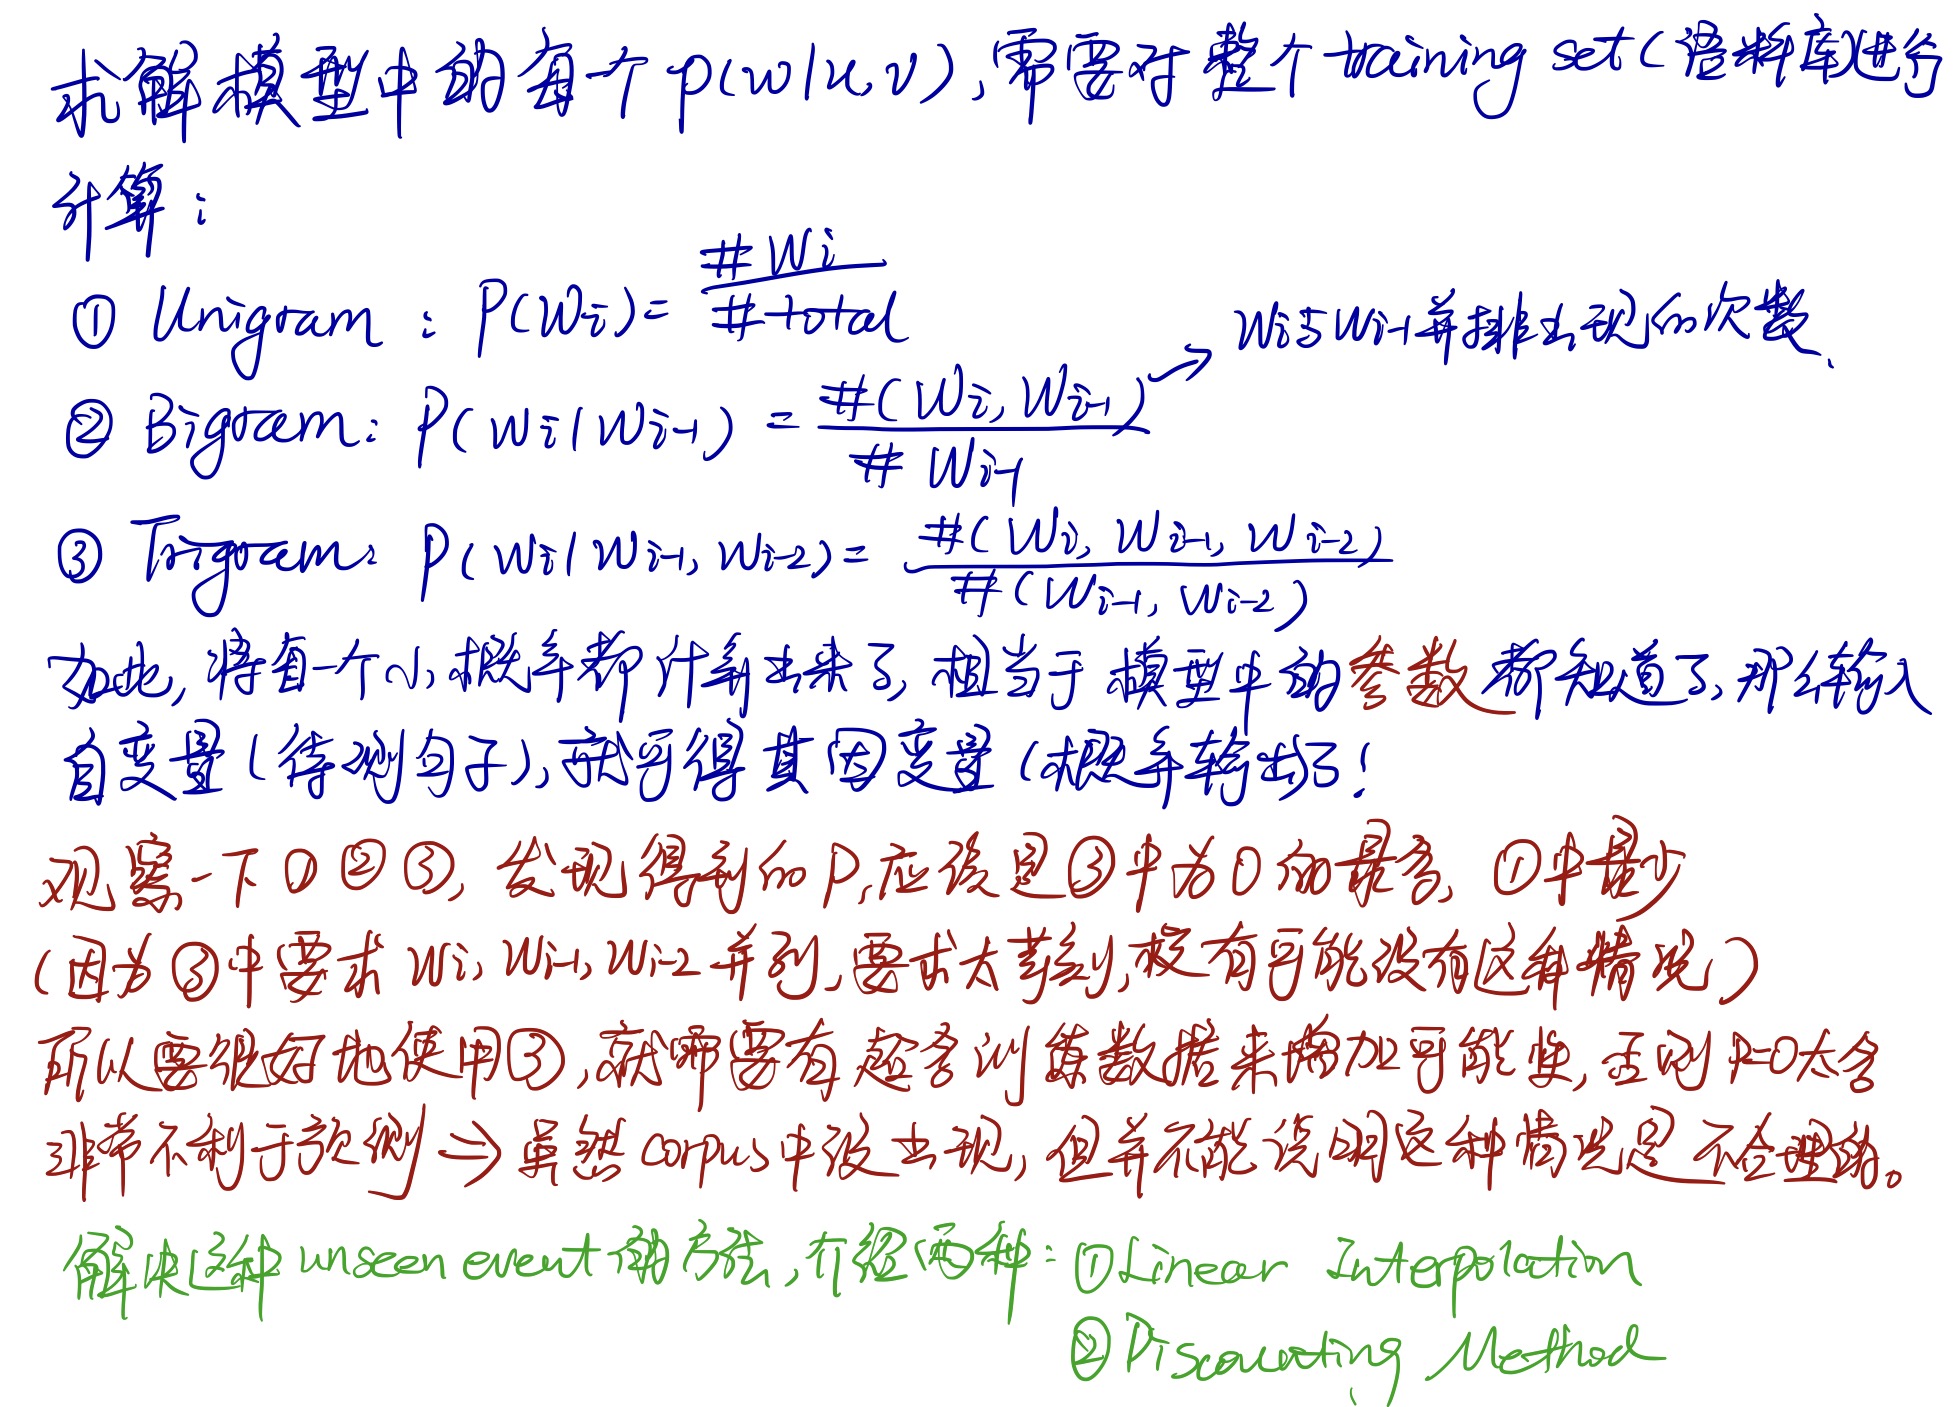 求解模型中的每一个 p(w|u,v), 需要对整个 training set (语料库)进行
计算:
① Unigram: P(Wi) = #Wi / #total
Wi与Wi-1并排出现的次数.
② Bigram: P(Wi|Wi-1) = #(Wi, Wi-1) / #Wi-1
③ Trigram: P(Wi|Wi-1, Wi-2) = #(Wi, Wi-1, Wi-2) / #(Wi-1, Wi-2)
如此, 将每一个小概率都计算出来了, 相当于模型中的参数都知道了, 那么输入
自变量(待测句子), 就可得其因变量(概率输出)了!
观察一下①②③, 发现得到的P, 应该是③中为0的最多, ①中最少
(因为③中要求 Wi, Wi-1, Wi-2 并列, 要求太苛刻, 极有可能没有这种情况)
所以要很好地使用③, 就需要有超多训练数据来增加可能性, 否则P=0太多
非常不利于预测 ⇒ 虽然corpus中没出现, 但并不能说明这种情况是不合理的。
解决这种unseen event的方法, 介绍两种: ① Linear Interpolation
② Discounting Method